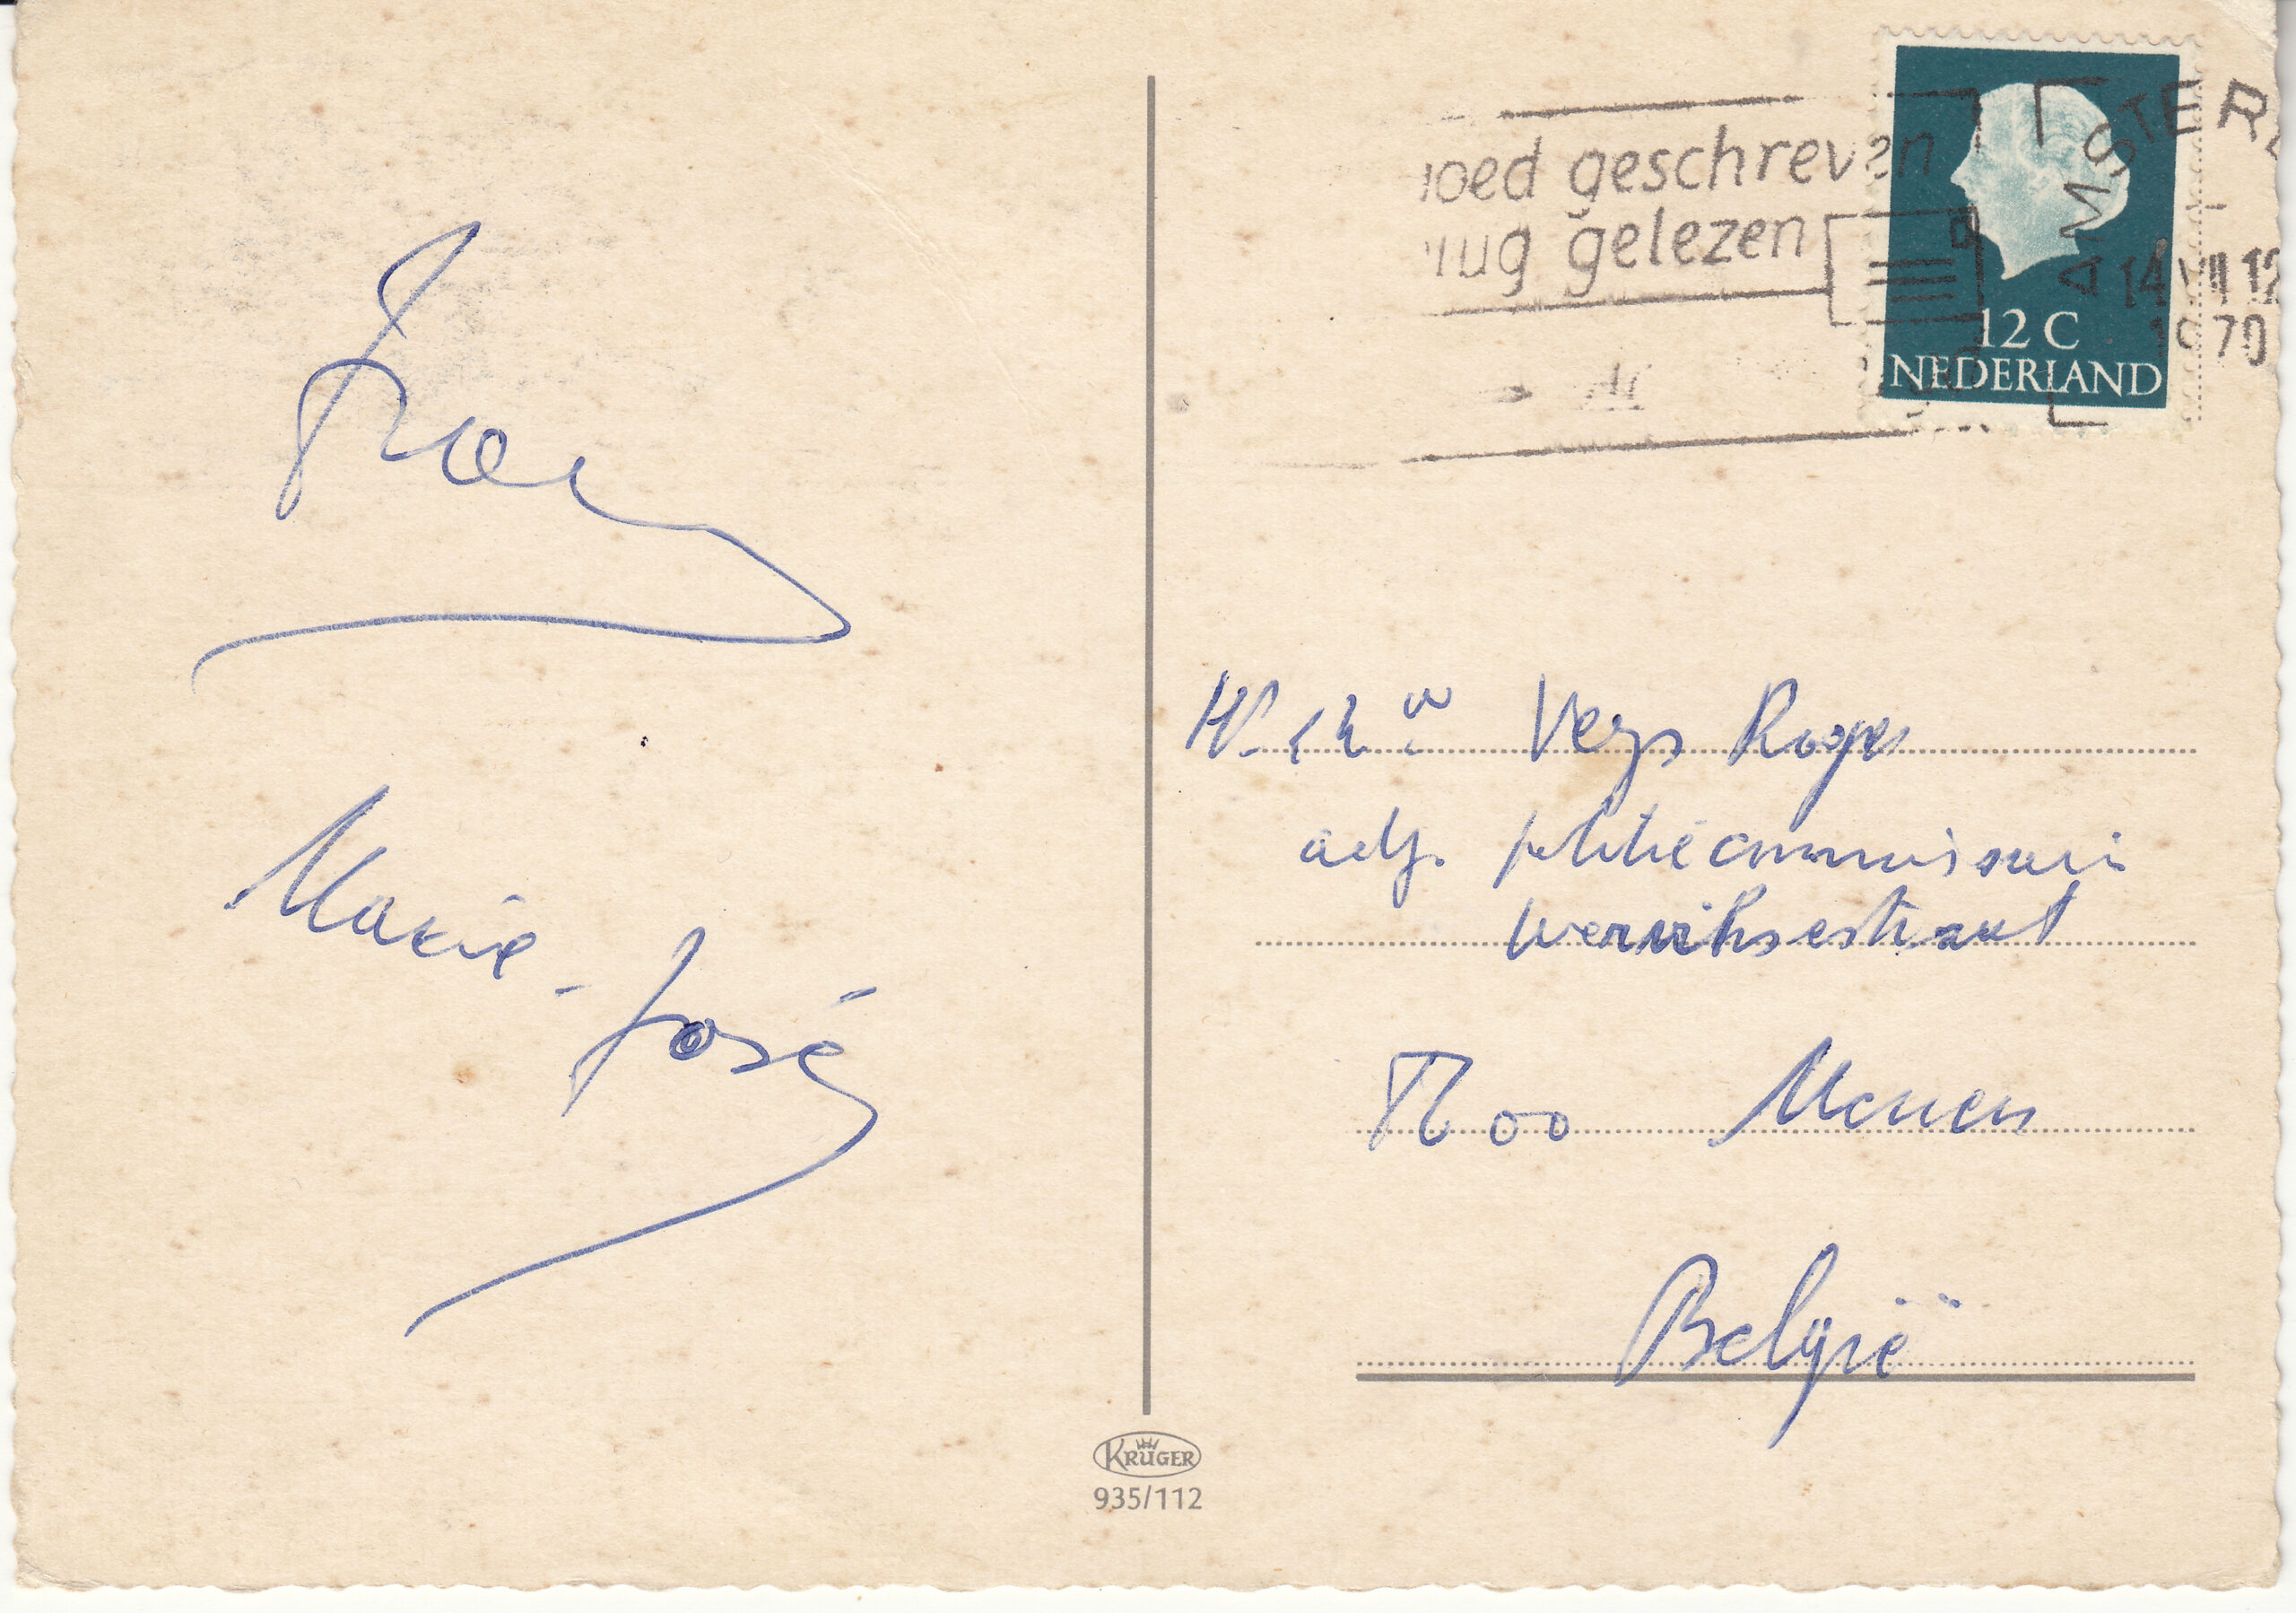 Marie-José
oed geschreven
ug gelezen
AMSTERD
14 VII 12
1970
12 C
NEDERLAND
Veys Roger
adj. politiecommissaris
Wervikstraat
8600 Menen
België
KRÜGER
935/112